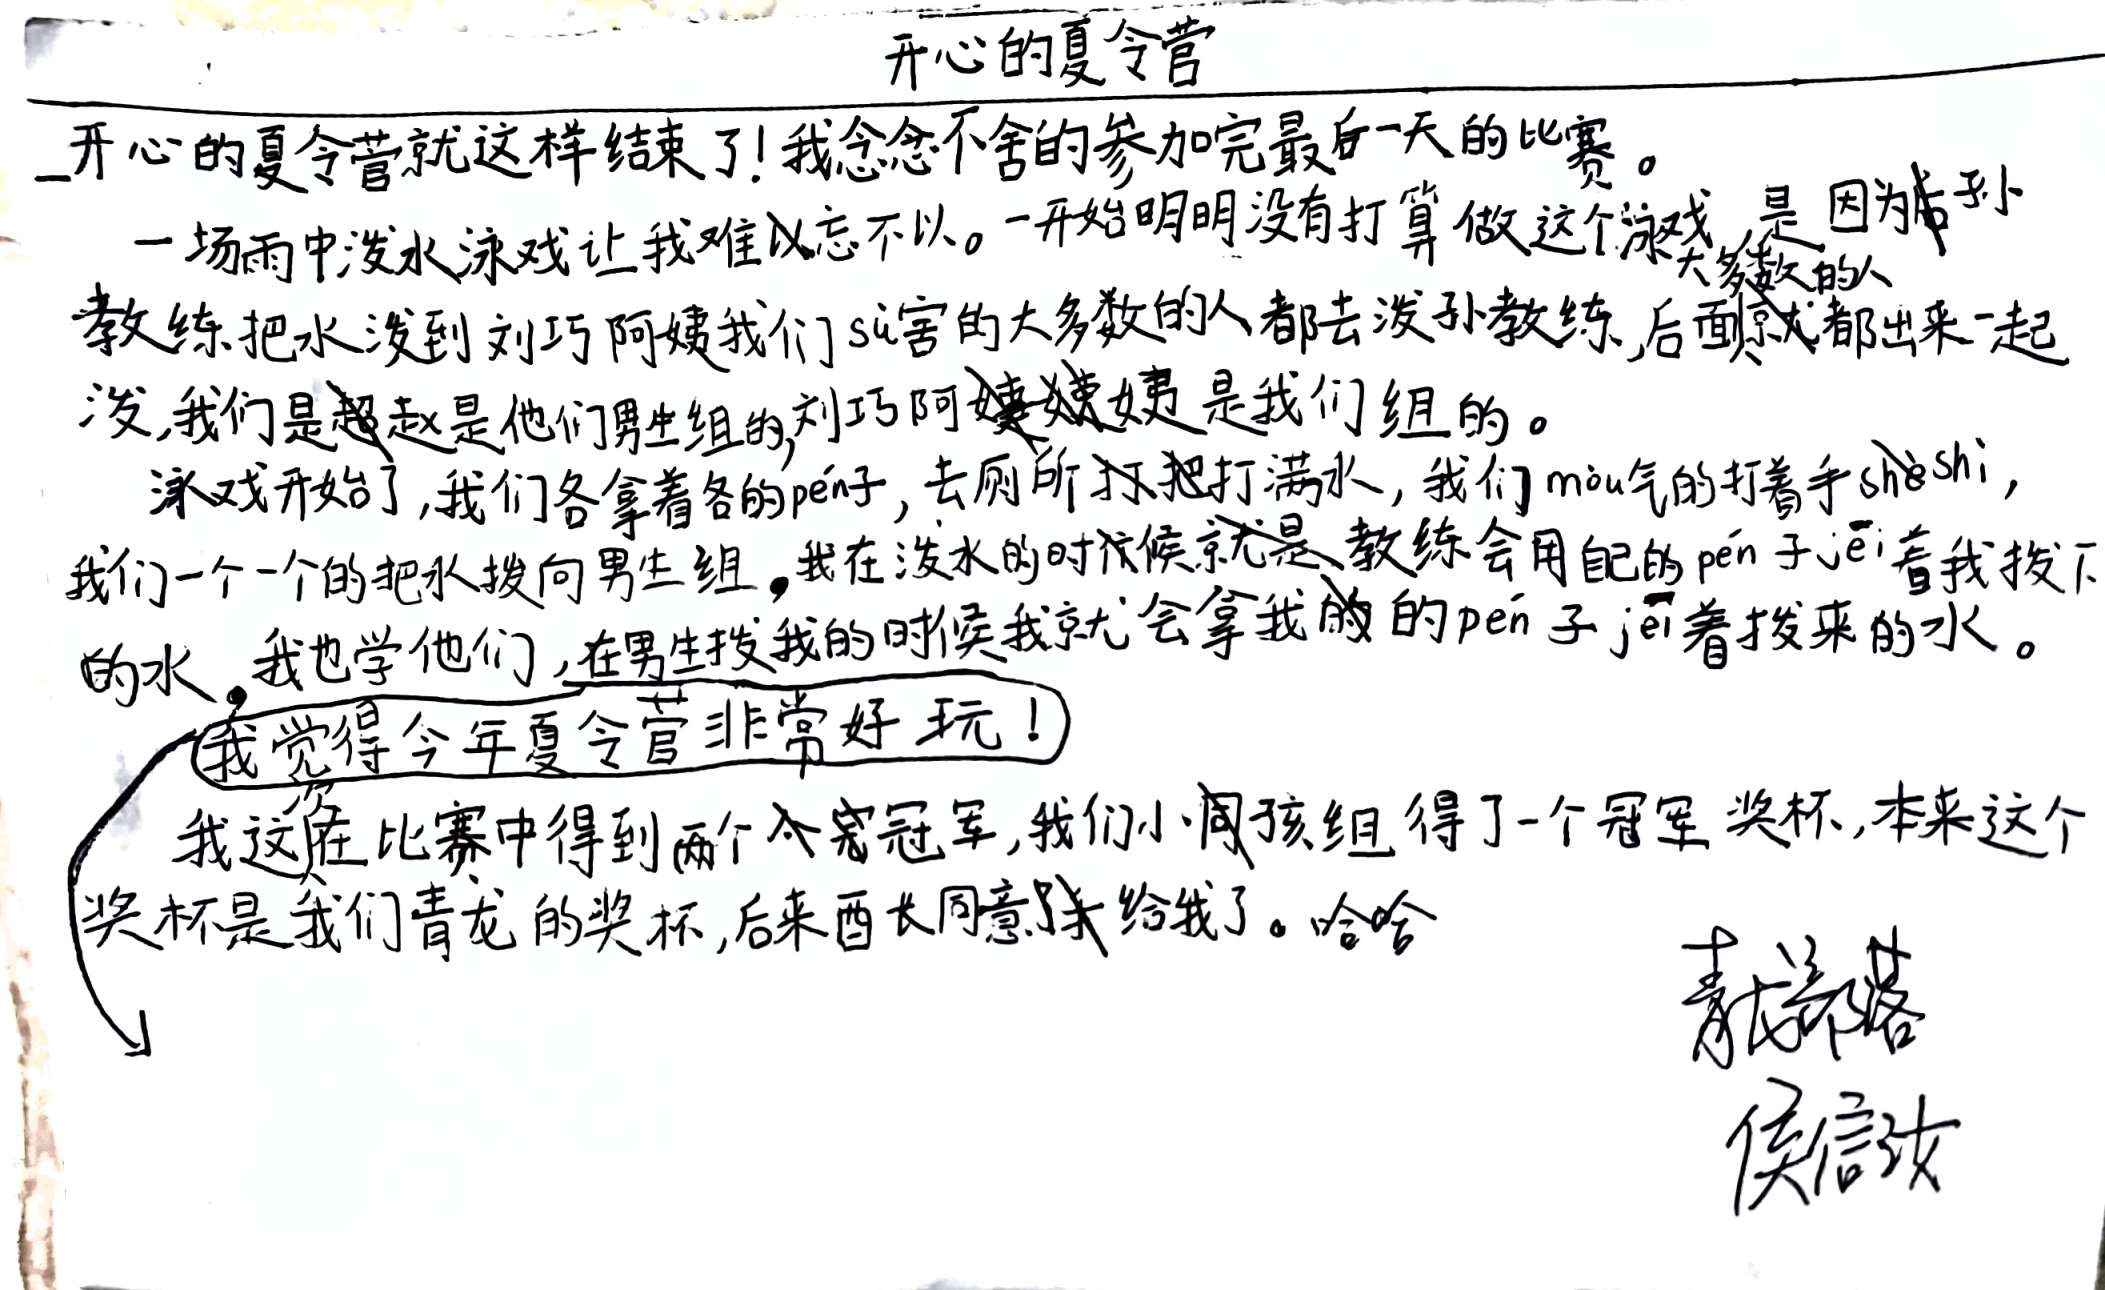 开心的夏令营
开心的夏令营就这样结束了！我念念不舍的参加完最后一天的比赛。
一场雨中泼水泳戏让我难忘不以。一开始明明没有打算做这个泳戏，是因为孙
大多数的人
教练把水泼到刘巧阿姨我们sù害的大多数的人都去泼孙教练，后面都出来一起
泼，我们是赵是他们男生组的，刘巧阿姨是我们组的。
泳戏开始了，我们各拿着各的pén子，去厕所把打满水，我们mòu气的打着手shi，
我们一个一个的把水拨向男生组。我在泼水的时候教练会用自己的pén子jēi着我拨下
的水。我也学他们，在男生拨我的时候我就会拿我的pén子jēi着拨来的水。
我觉得今年夏令营非常好玩！
次
我这在比赛中得到两个冠军，我们小孩组得了一个冠军奖杯，本来这个
奖杯是我们青龙的奖杯，后来酋长同意给我了。哈哈
青龙部落
侯信汝